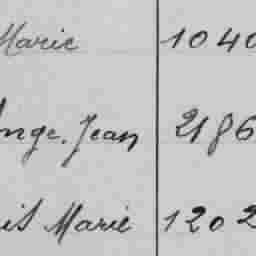 Marie 1040
Ange. Jean 2186
is Marie 1202